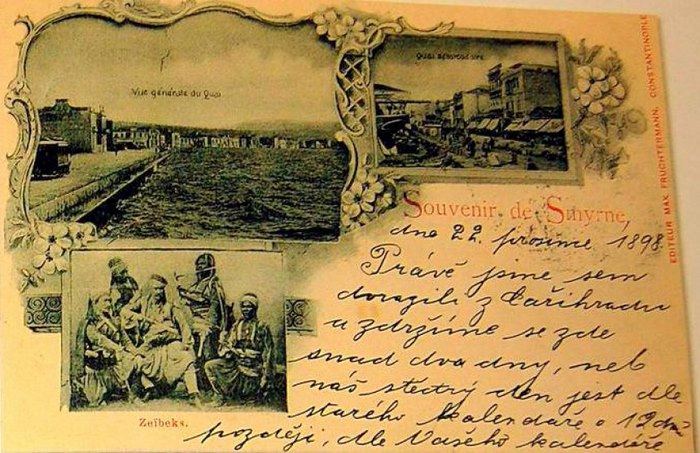 Vue générale du Quai
Quai débarcadère
Souvenir de Smyrne,
EDITEUR MAX FRUCHTERMANN, CONSTANTINOPLE
dne 22. prosince 1898
Právě jsme sem
dorazili z Cařihradu
a zdržíme se zde
snad dva dny, neb
náš štědrý den jest dle
starého kalendáře o 12 dní
později, dle Vašeho kalendáře
Zeïbeks.